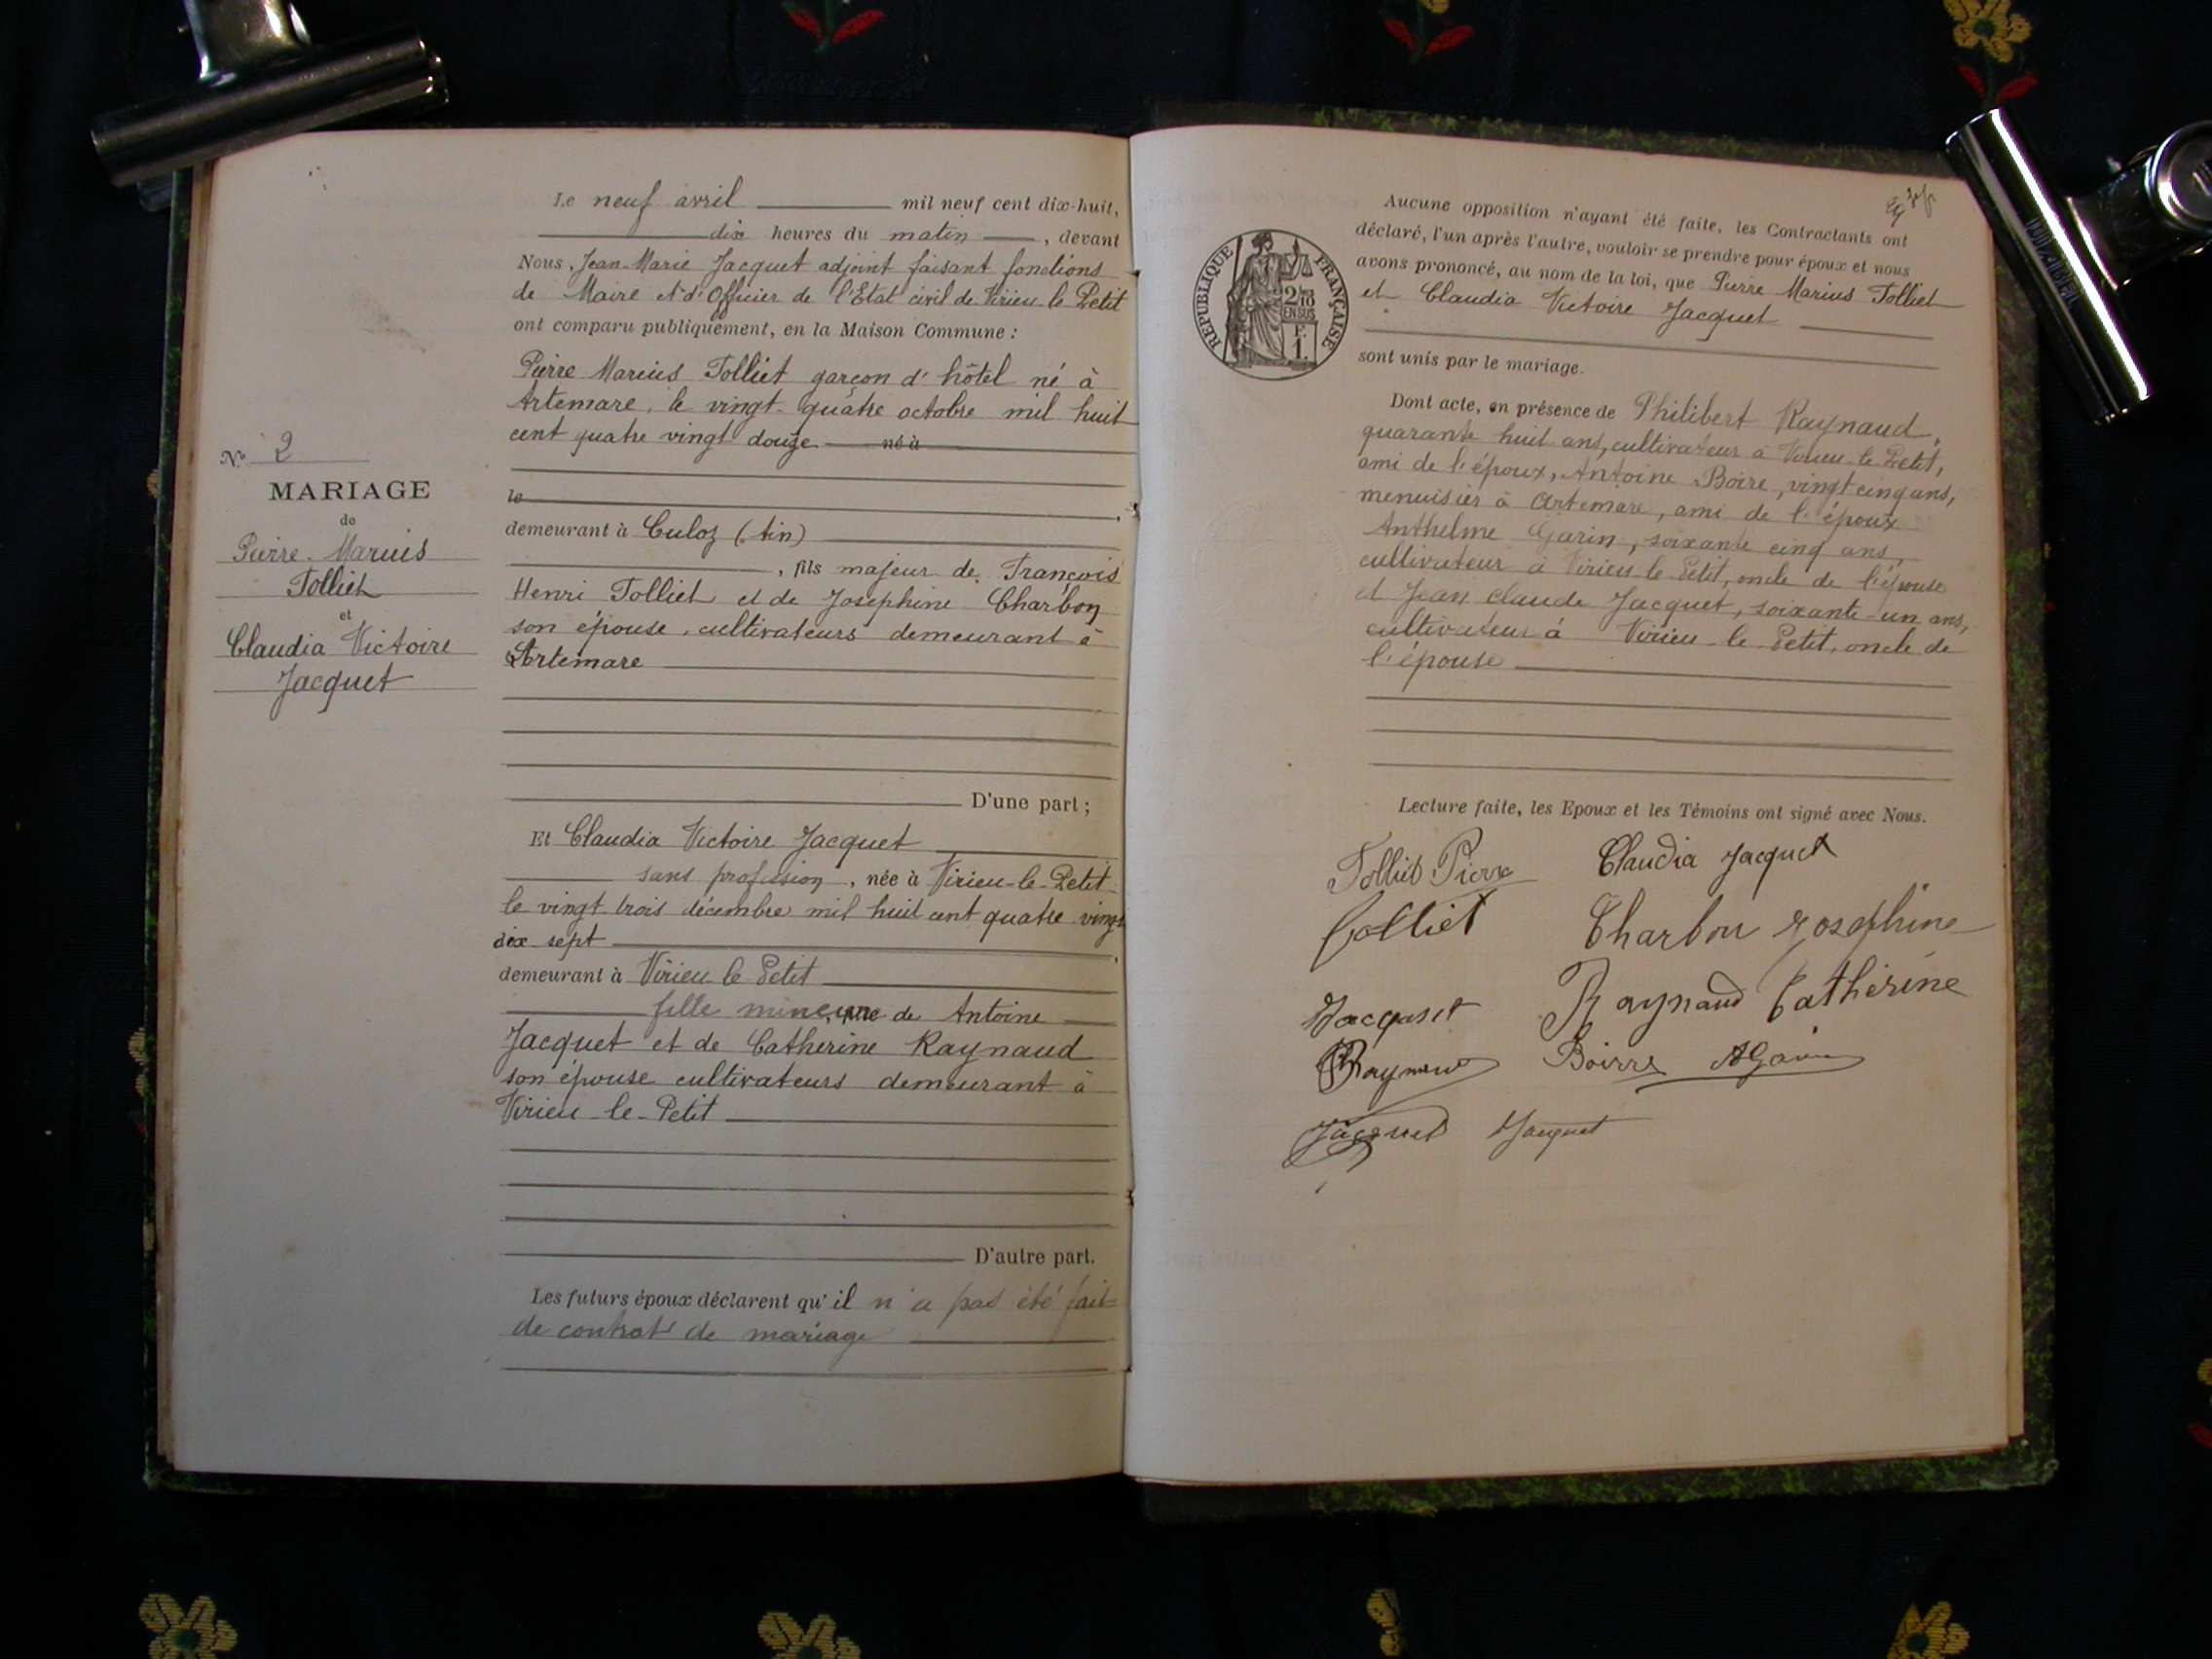 Le neuf avril mil neuf cent dix-huit,
dix heures du matin, devant
Nous, Jean-Marie Jacquet adjoint faisant fonctions
de Maire et d'Officier de l'Etat civil de Virieu le Petit
ont comparu publiquement, en la Maison Commune :
Pierre Marius Tolliet garçon d'hôtel né à
Artemare, le vingt-quatre octobre mil huit
cent quatre vingt douze né à
le
demeurant à Culoz (Ain)
, fils majeur de François
Henri Tolliet et de Joséphine Charbon
son épouse, cultivateurs demeurant à
Artemare
D'une part ;
Et Claudia Victoire Jacquet
sans profession, née à Virieu-le-Petit
le vingt trois décembre mil huit cent quatre vingt
dix sept
demeurant à Virieu le Petit
fille mineure de Antoine
Jacquet et de Catherine Raynaud
son épouse cultivateurs demeurant à
Virieu-le-Petit
D'autre part.
Les futurs époux déclarent qu'il n'a pas été fait
de contrat de mariage
N° 2
MARIAGE
de
Pierre-Marius
Tolliet
et
Claudia Victoire
Jacquet
Aucune opposition n'ayant été faite, les Contractants ont
déclaré, l'un après l'autre, vouloir se prendre pour époux et nous
avons prononcé, au nom de la loi, que Pierre Marius Tolliet
et Claudia Victoire Jacquet
sont unis par le mariage.
RÉPUBLIQUE FRANÇAISE
2/10
EN SUS
F.
1.
Dont acte, en présence de Philibert Raynaud,
quarante huit ans, cultivateur à Virieu le Petit,
ami de l'époux, Antoine Boire, vingt cinq ans,
menuisier à Artemare, ami de l'époux
Anthelme Garin, soixante cinq ans,
cultivateur à Virieu le Petit, oncle de l'épouse
et Jean Claude Jacquet, soixante-un ans,
cultivateur à Virieu-le-Petit, oncle de
l'épouse
Lecture faite, les Epoux et les Témoins ont signé avec Nous.
Tolliet Pierre Claudia Jacquet
Tolliet Charbon Josephine
Jacquet Raynaud Catherine
Raynaud Boirre AGarin
Jacquet Jacquet